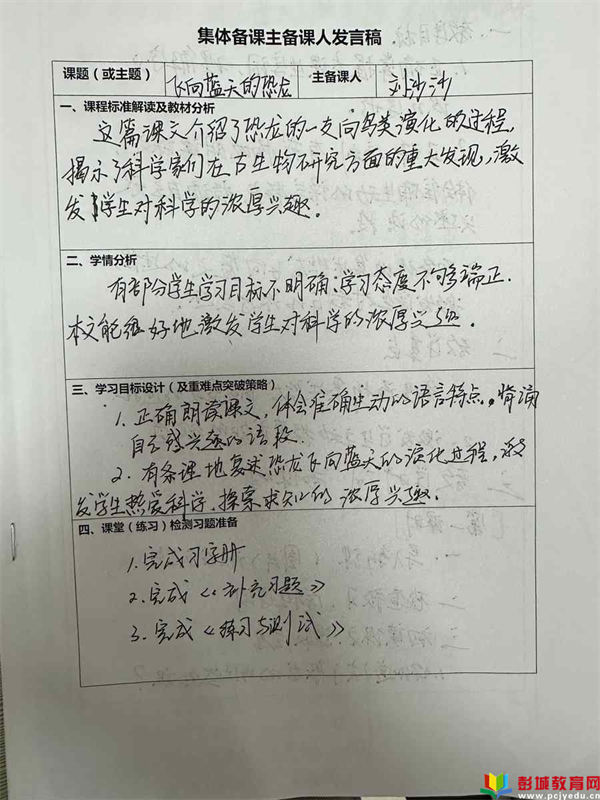 集体备课主备课人发言稿
课题（或主题） 飞向蓝天的恐龙 主备课人 刘沙沙
一、课程标准解读及教材分析
这篇课文介绍了恐龙的一支向鸟类演化的过程，
揭示了科学家们在古生物研究方面的重大发现，激
发学生对科学的浓厚兴趣。
二、学情分析
有部分学生学习目标不明确，学习态度不够端正.
本文能很好地激发学生对科学的浓厚兴趣.
三、学习目标设计（及重难点突破策略）
1. 正确朗读课文，体会准确生动的语言特点，背诵
自己感兴趣的语段.
2. 有条理地复述恐龙飞向蓝天的演化过程，激
发学生热爱科学、探索求知的浓厚兴趣.
四、课堂（练习）检测习题准备
1. 完成习字册
2. 完成《补充习题》
3. 完成《练习与测试》
彭城教育网
www.pcjyedu.cn